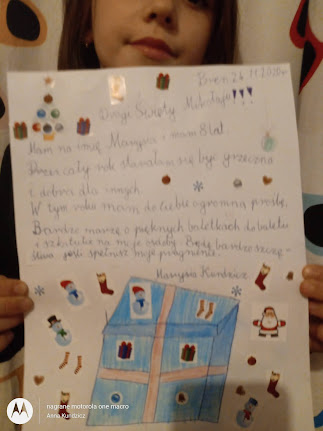 Breń 26.11.2020r
Drogi Święty Mikołaju!!!
Mam na imię Marysia i mam 8 lat.
Przez cały rok starałam się być grzeczna
i dobra dla innych.
W tym roku mam do Ciebie ogromną prośbę,
Bardzo marzę o pięknych baletkach do baletu
i szkatułce na moje ozdoby. Będę bardzo szczę-
śliwa jeśli spełnisz moje pragnienie.
Marysia Kurdzicz
nagrane motorola one macro
Anna Kurdzicz